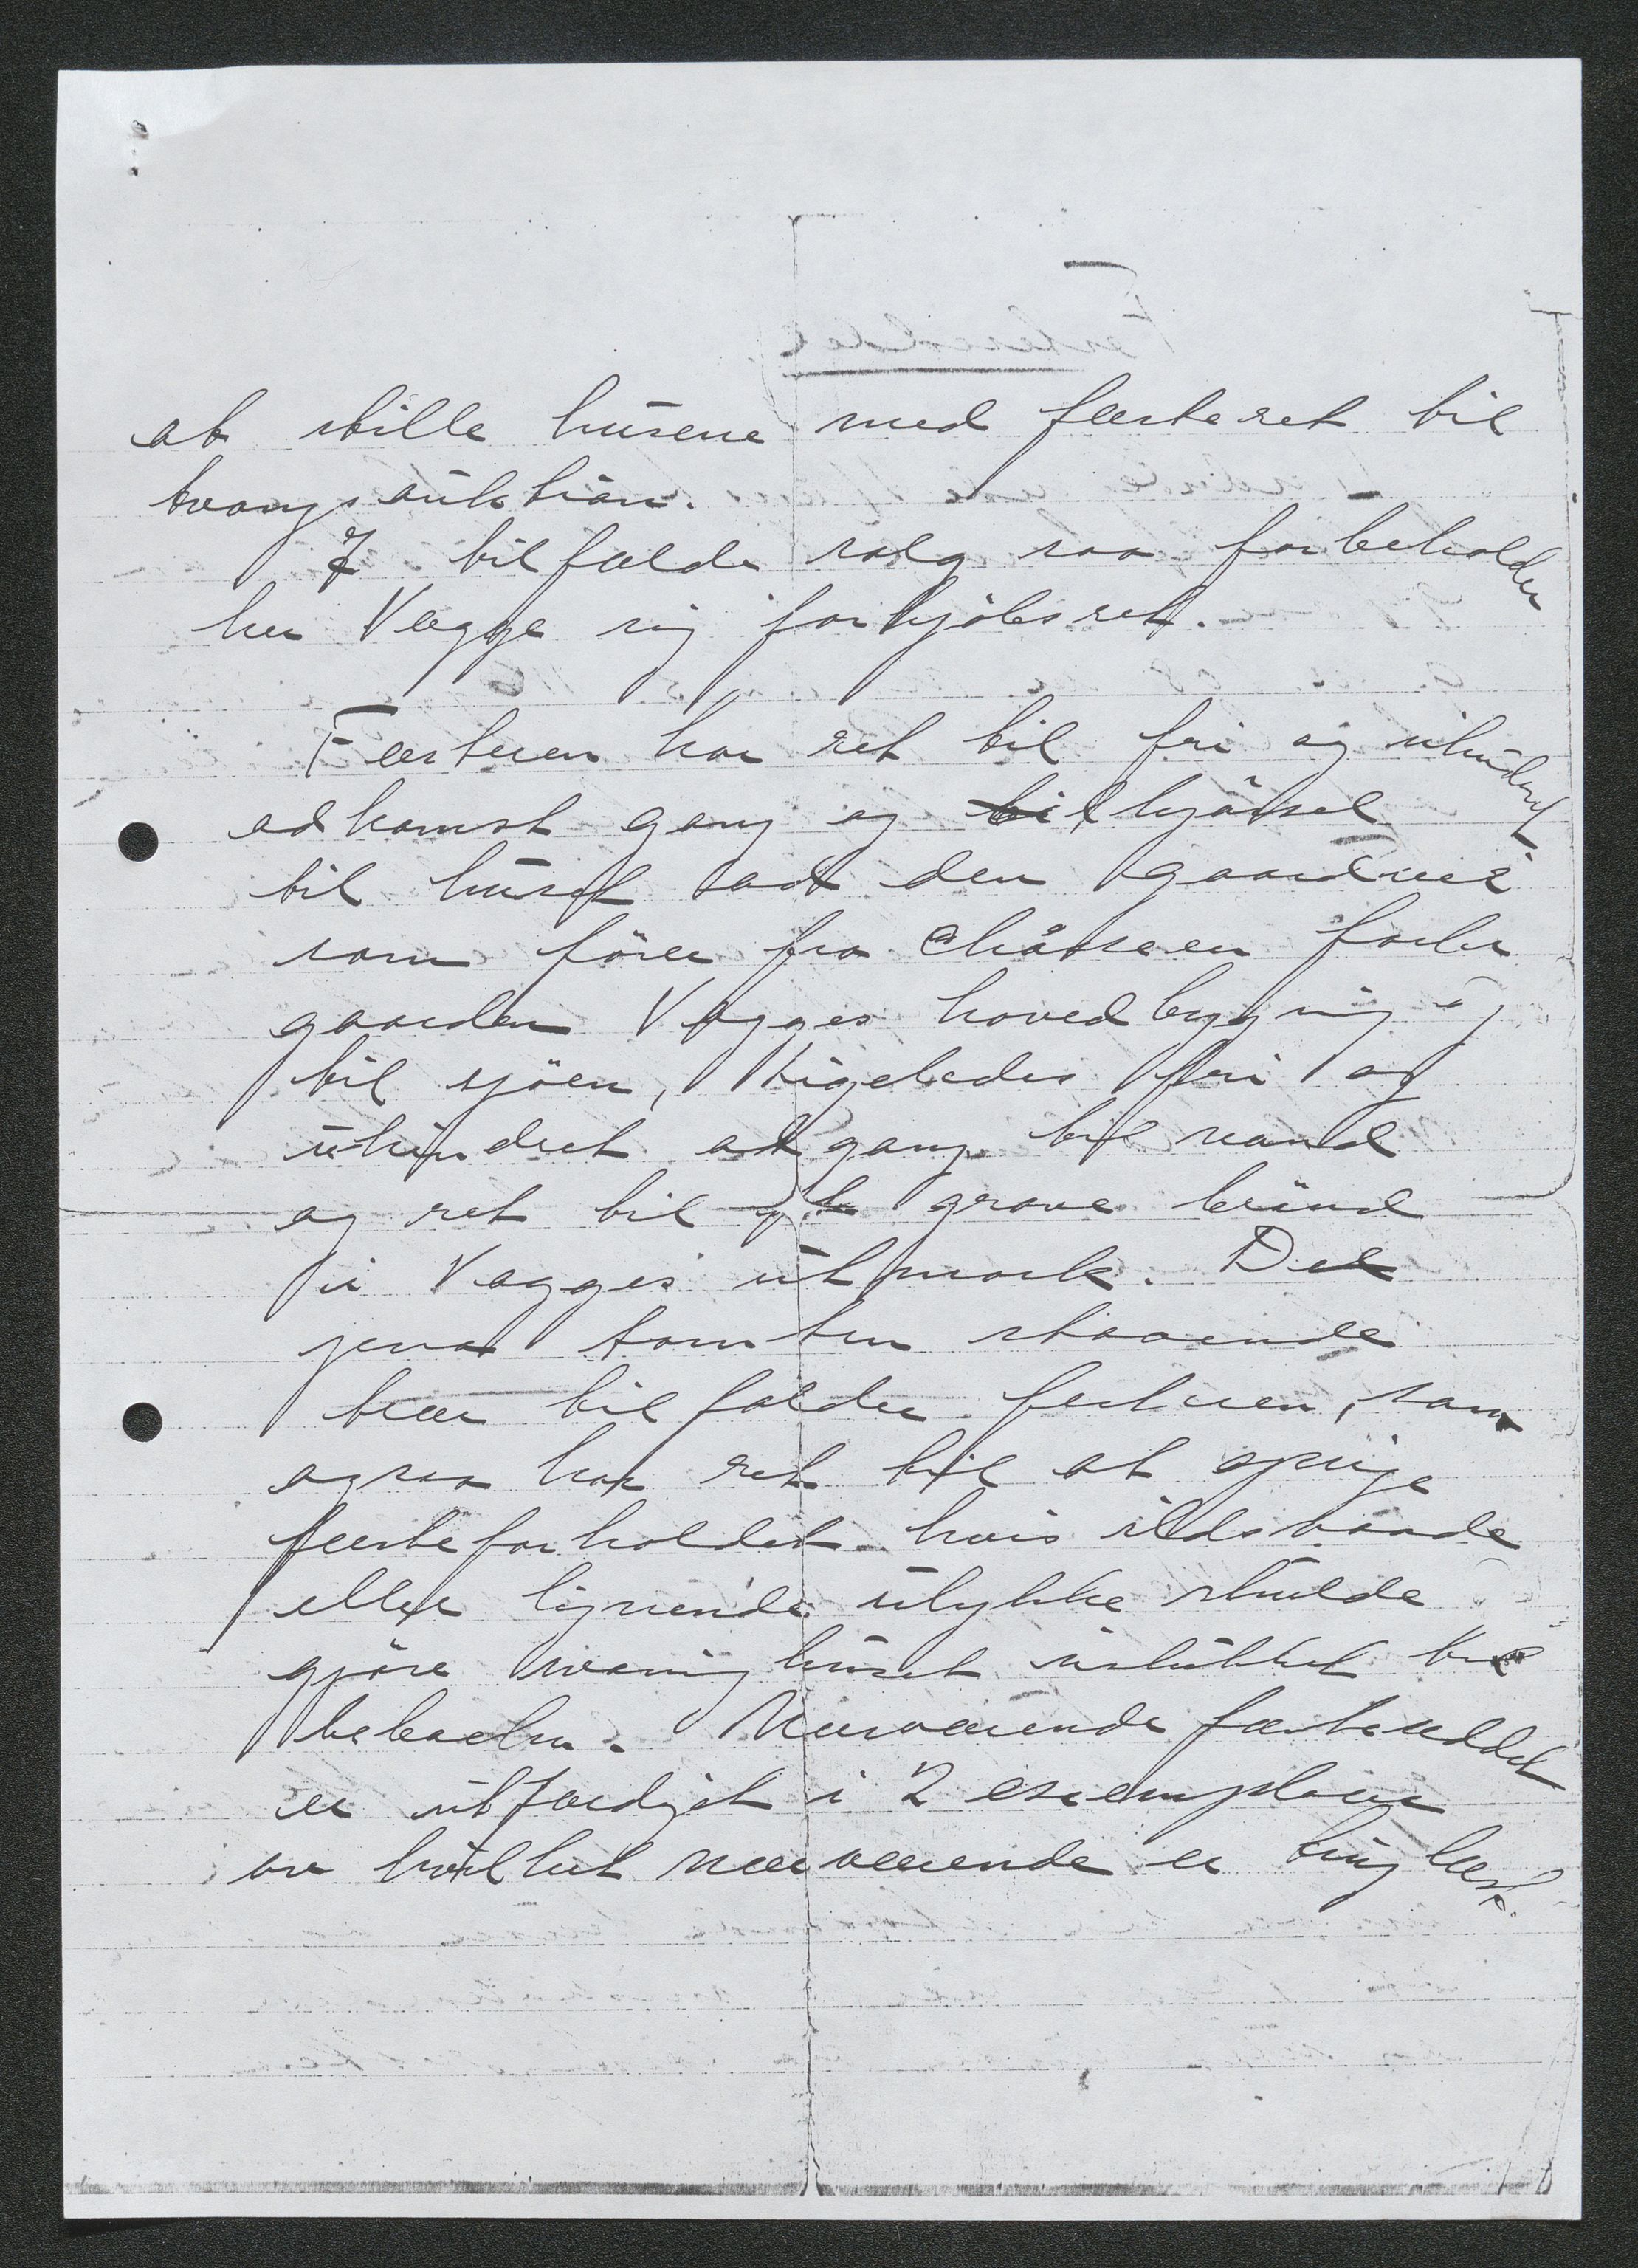 at stille husene med festeret til
tvangsauktion.
I tilfælde salg saa forbeholder
hr Vegge sig forkjöbsret.
Festeren har ret til fri og uhindret
adkomst gang og til kjörsel
til huset ad den gaardvei
som förer fra Chausseen forbi
gaarden Vegges hovedbygning og
til sjöen, ligeledes fri og
uhindret adgang til vand
og ret til at grave brönd
i Vegges utmark. De
paa tomten staaende
træer tilfalder festeren, som
ogsaa har ret til at opsige
festeforholdet hvis ildsvaade
eller lignende ulykke skulde
gjöre vaaningshuset uskikket til
beboelse. Nærværende festeseddel
er utfærdiget i 2 exemplarer
av hvilket nærværende er tinglæst.